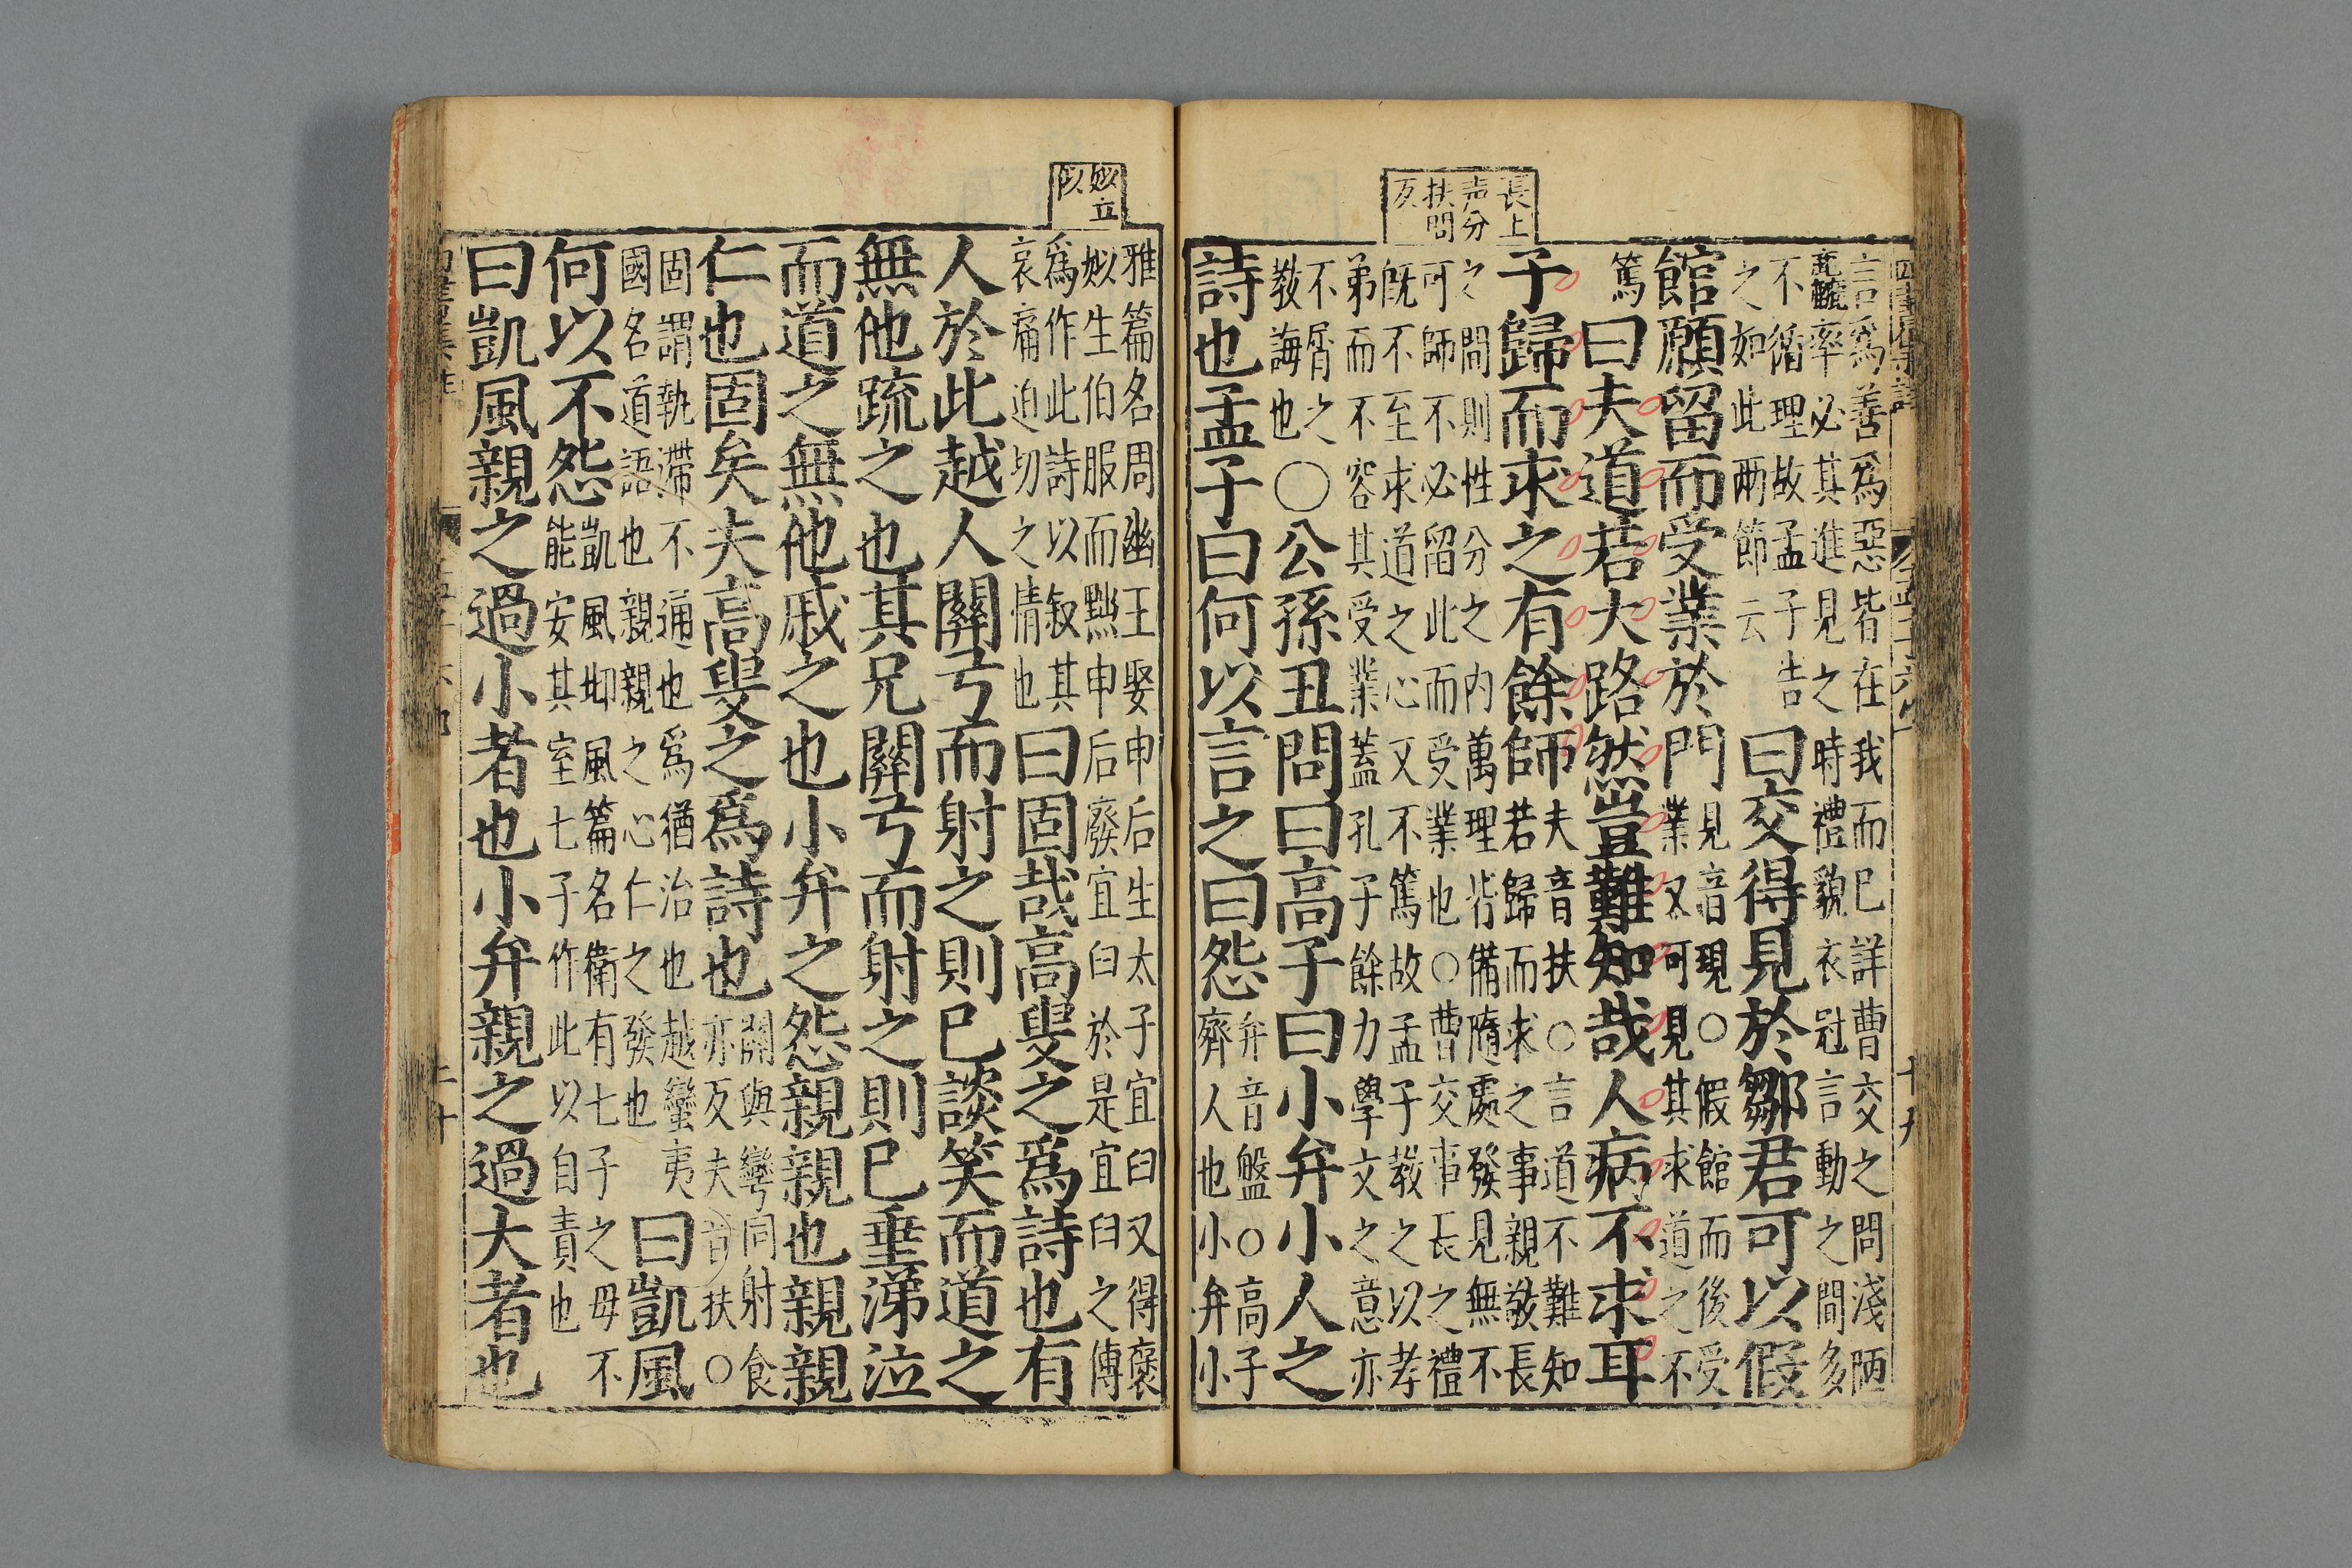 長上
声分
扶問
反
言爲善爲惡皆在我而已詳曹交之問淺陋
麄率必其進見之時禮貌衣冠言動之間多
不循理故孟子告
之如此兩節云
曰交得見於鄒君可以假
館願留而受業於門
見音現○假館而後受
業又可見其求道之不
篤
曰夫道若大路然豈難知哉人病不求耳
子歸而求之有餘師
夫音扶○言道不難知
若歸而求之事親敬長
之間則性分之内萬理皆備隨處發見無不
可師不必留此而受業也○曹交事長之禮
旣不至求道之心又不篤故孟子教之以孝
弟而不容其受業蓋孔子餘力學文之意亦
不屑之
教誨也
○公孫丑問曰高子曰小弁小人之
詩也孟子曰何以言之曰怨
弁音盤○高子
齊人也小弁小
姒立
似
雅篇名周幽王娶申后生太子宜臼又得褒
姒生伯服而黜申后廢宜臼於是宜臼之傅
爲作此詩以叙其
哀痛迫切之情也
曰固哉高叟之爲詩也有
人於此越人關弓而射之則已談笑而道之
無他疏之也其兄關弓而射之則已垂涕泣
而道之無他戚之也小弁之怨親親也親親
仁也固矣夫高叟之爲詩也
關與彎同射食
亦反夫音扶○
固謂執滯不通也爲猶治也越蠻夷
國名道語也親親之心仁之發也
曰凱風
何以不怨
凱風邶風篇名衛有七子之母不
能安其室七子作此以自責也
曰凱風親之過小者也小弁親之過大者也